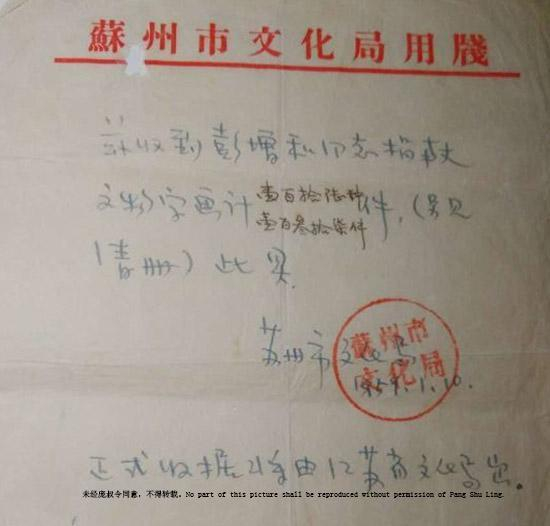 蘇州市文化局用牋
兹收到彭增和同志捐献
文物字画计壹百拾陆种
壹百叁拾柒件
件,(另见
清册)此具.
苏州市文化局
蘇州市
文化局
1959.1.10.
正式收据将由江苏省文化局出。
未经庞叔令同意,不得转载。No part of this picture shall be reproduced without permission of Pang Shu Ling.